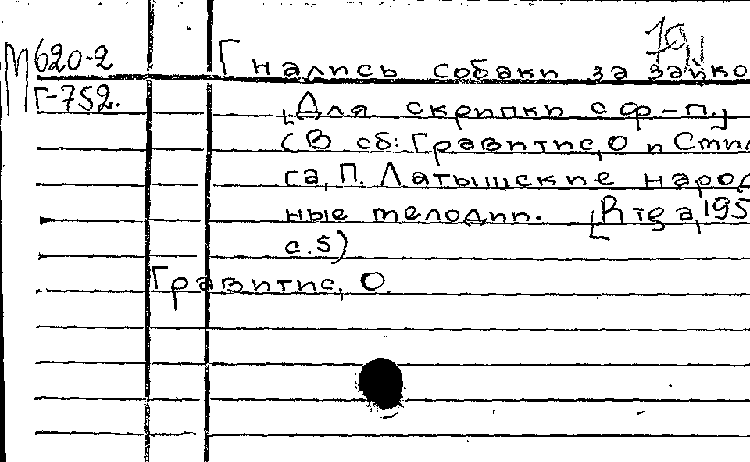 М620-2
Г-752.
Гнались собаки за зайко
[Для скрипки с ф-п.]
(В сб: Гравитис, О и Стпи
га, П. Латышские народ
ные мелодии. [Рига, 195
с.5)
Гравитис, О.